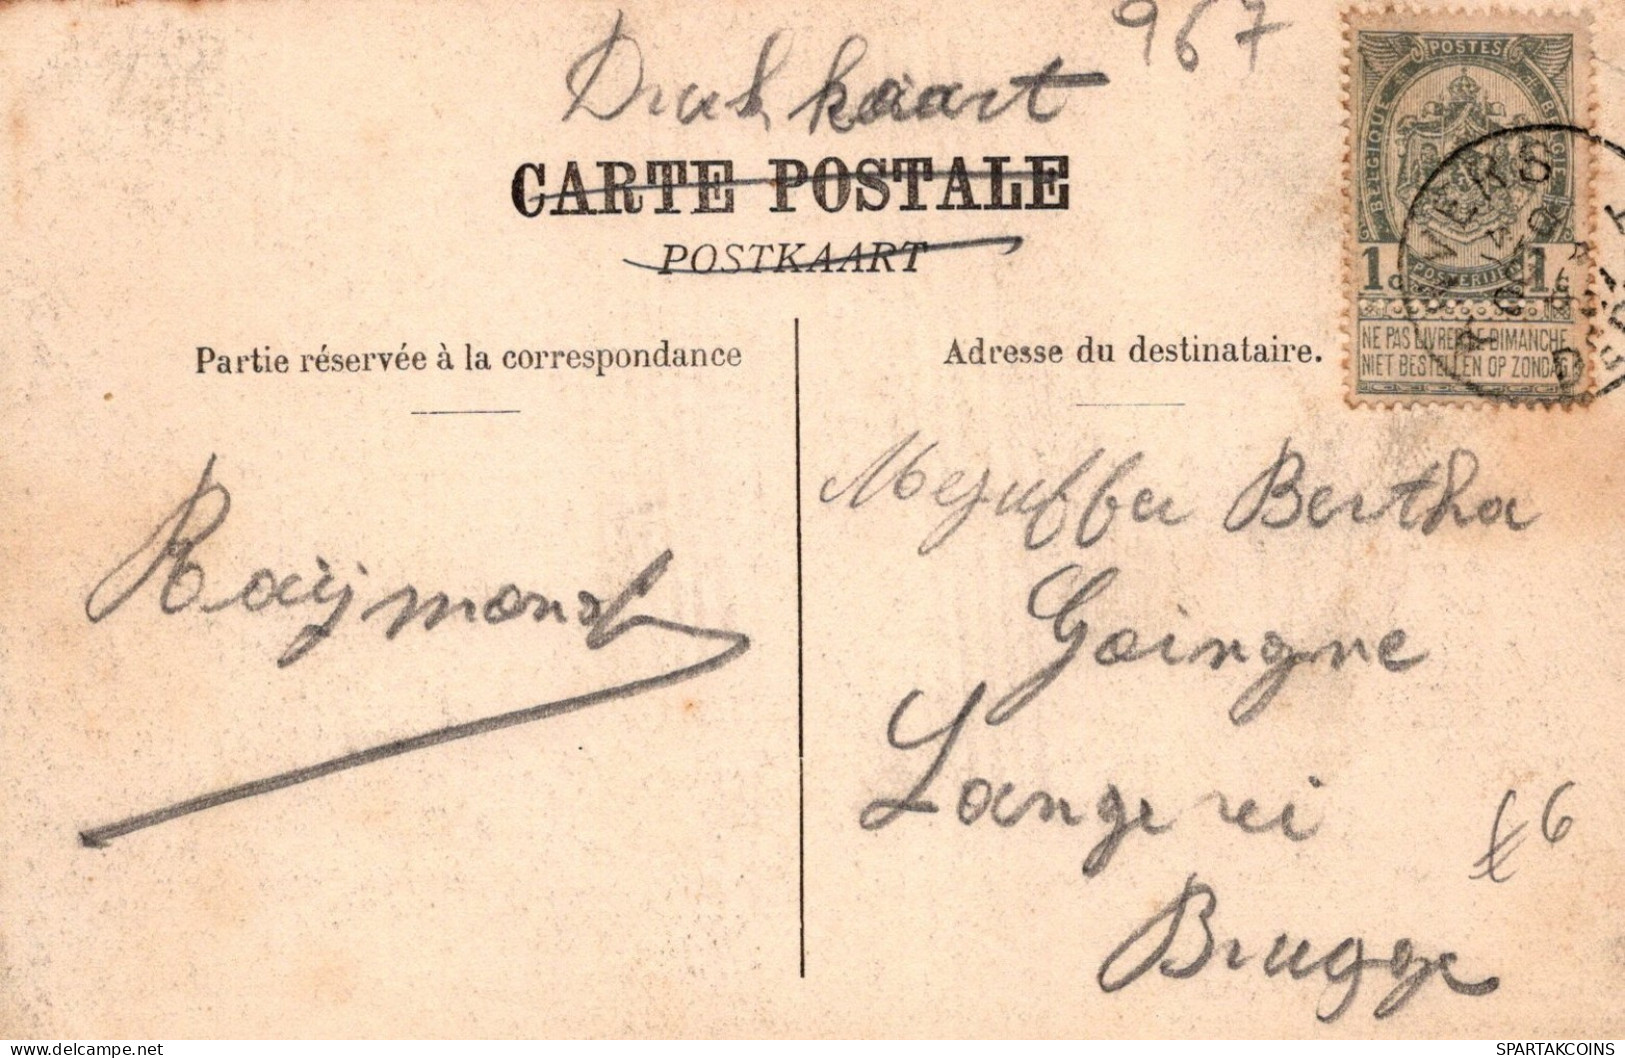 967
Druk kaart
CARTE POSTALE
POSTKAART
POSTES
BELGIQUE
BELGIË
POSTERIJEN
1c 1c
NE PAS LIVRER LE DIMANCHE
NIET BESTELLEN OP ZONDAG
Partie réservée à la correspondance
Adresse du destinataire.
Raÿmond
Mejuffer Bertha
Goingne
Langerei
Brugge
£6
SPARTAKCOINS
delcampe.net